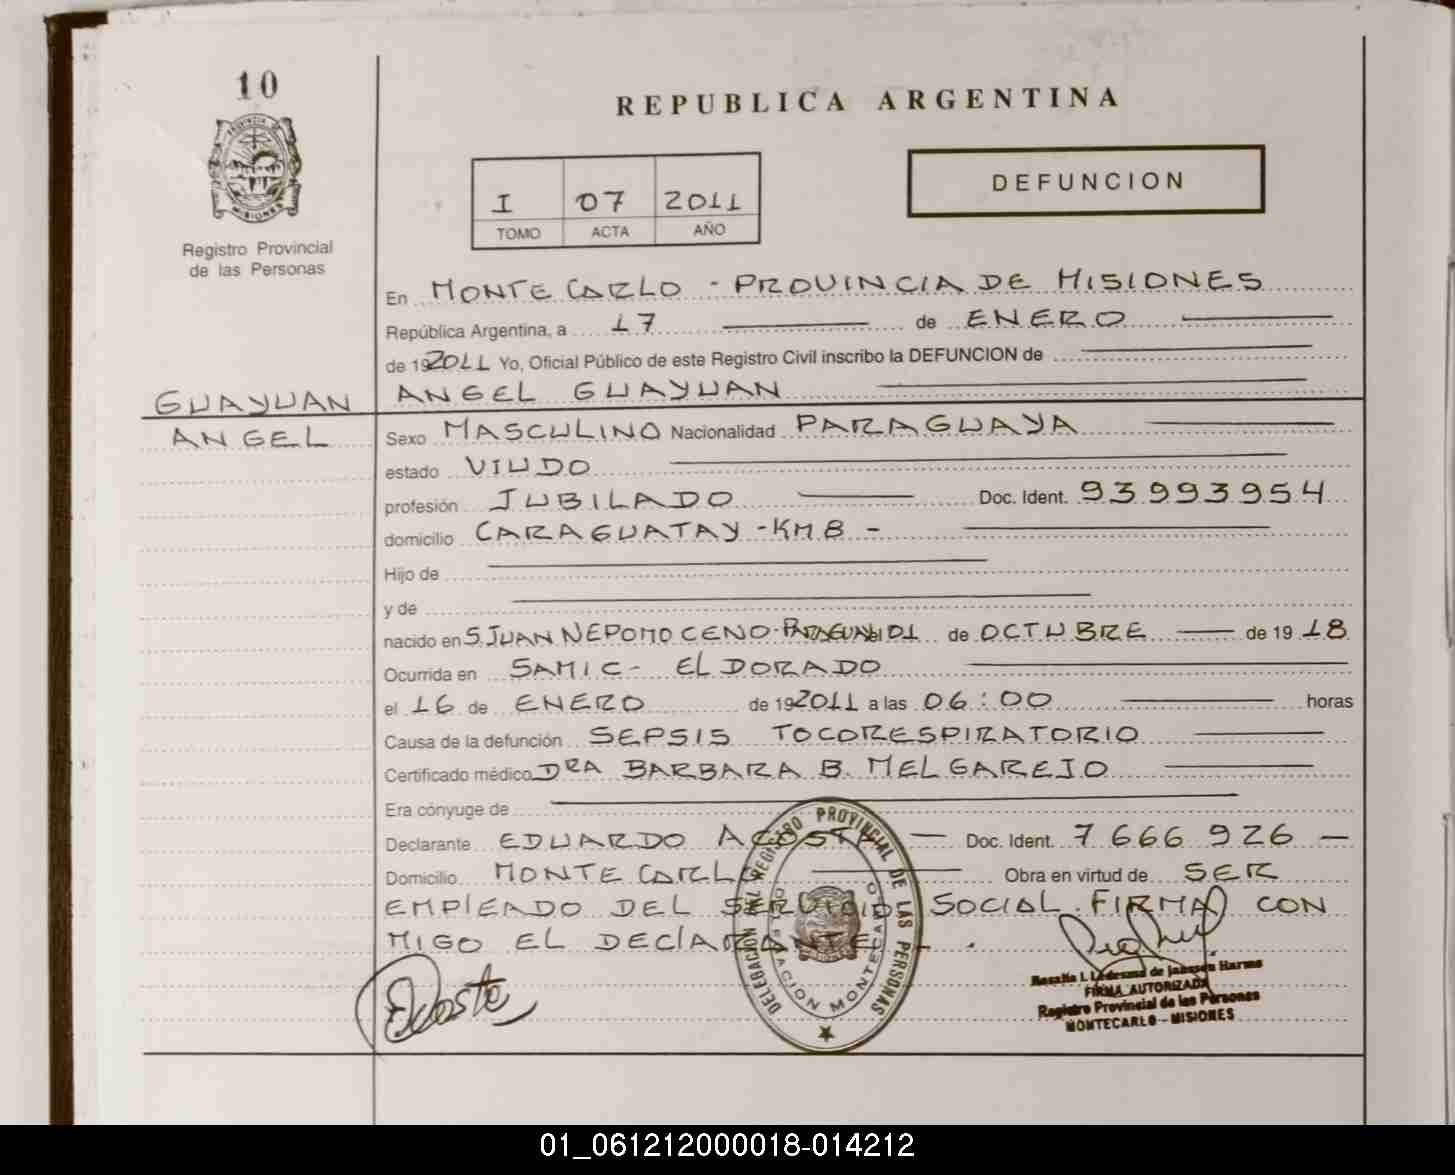 10
PROVINCIA DE
MISIONES
Registro Provincial
de las Personas
REPUBLICA ARGENTINA
I 07 2011
TOMO ACTA AÑO
DEFUNCION
En MONTE CARLO - PROVINCIA DE MISIONES
República Argentina, a 17 de ENERO
de 192011 Yo, Oficial Público de este Registro Civil inscribo la DEFUNCION de
GUAYUAN
ANGEL
ANGEL GUAYUAN
Sexo MASCULINO Nacionalidad PARAGUAYA
estado VIUDO
profesión JUBILADO Doc. Ident. 93993954
domicilio CARAGUATAY - KM 8 -
Hijo de
y de
nacido en S. JUAN NEPOMOCENO - PARAGUAY 01 de OCTUBRE de 19 18
Ocurrida en SAMIC - ELDORADO
el 16 de ENERO de 192011 a las 06:00 horas
Causa de la defunción SEPSIS TOCORESPIRATORIO
Certificado médico DRA BARBARA B. MELGAREJO
Era cónyuge de
Declarante EDUARDO ACOSTA — Doc. Ident. 7 666 926 —
Domicilio MONTE CARLO Obra en virtud de SER
EMPLEADO DEL SERVICIO SOCIAL. FIRMA CON
MIGO EL DECLARANTE - .
DELEGACION DEL REGISTRO PROVINCIAL DE LAS PERSONAS
MONTECARLO
Rosalia I. Ledesma de Janssen Harms
FIRMA AUTORIZADA
Registro Provincial de las Personas
MONTECARLO - MISIONES
01_061212000018-014212